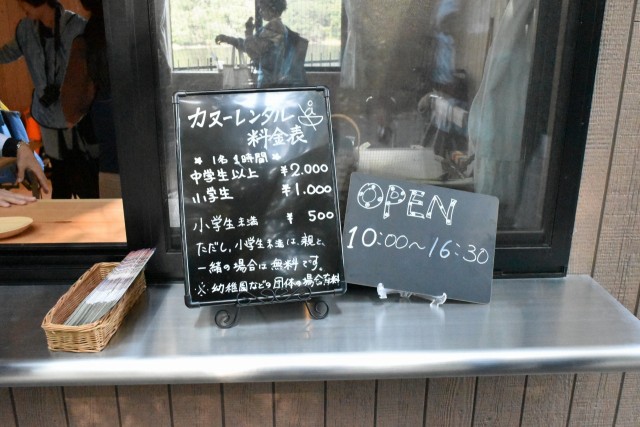 カヌーレンタル
料金表
★ 1名 1時間 ★
中学生以上 ¥2.000
小学生 ¥1.000
小学生未満 ¥ 500
ただし、小学生未満は、親と、
一緒の場合は無料です。
※幼稚園などの団体の場合有料
OPEN
10:00〜16:30